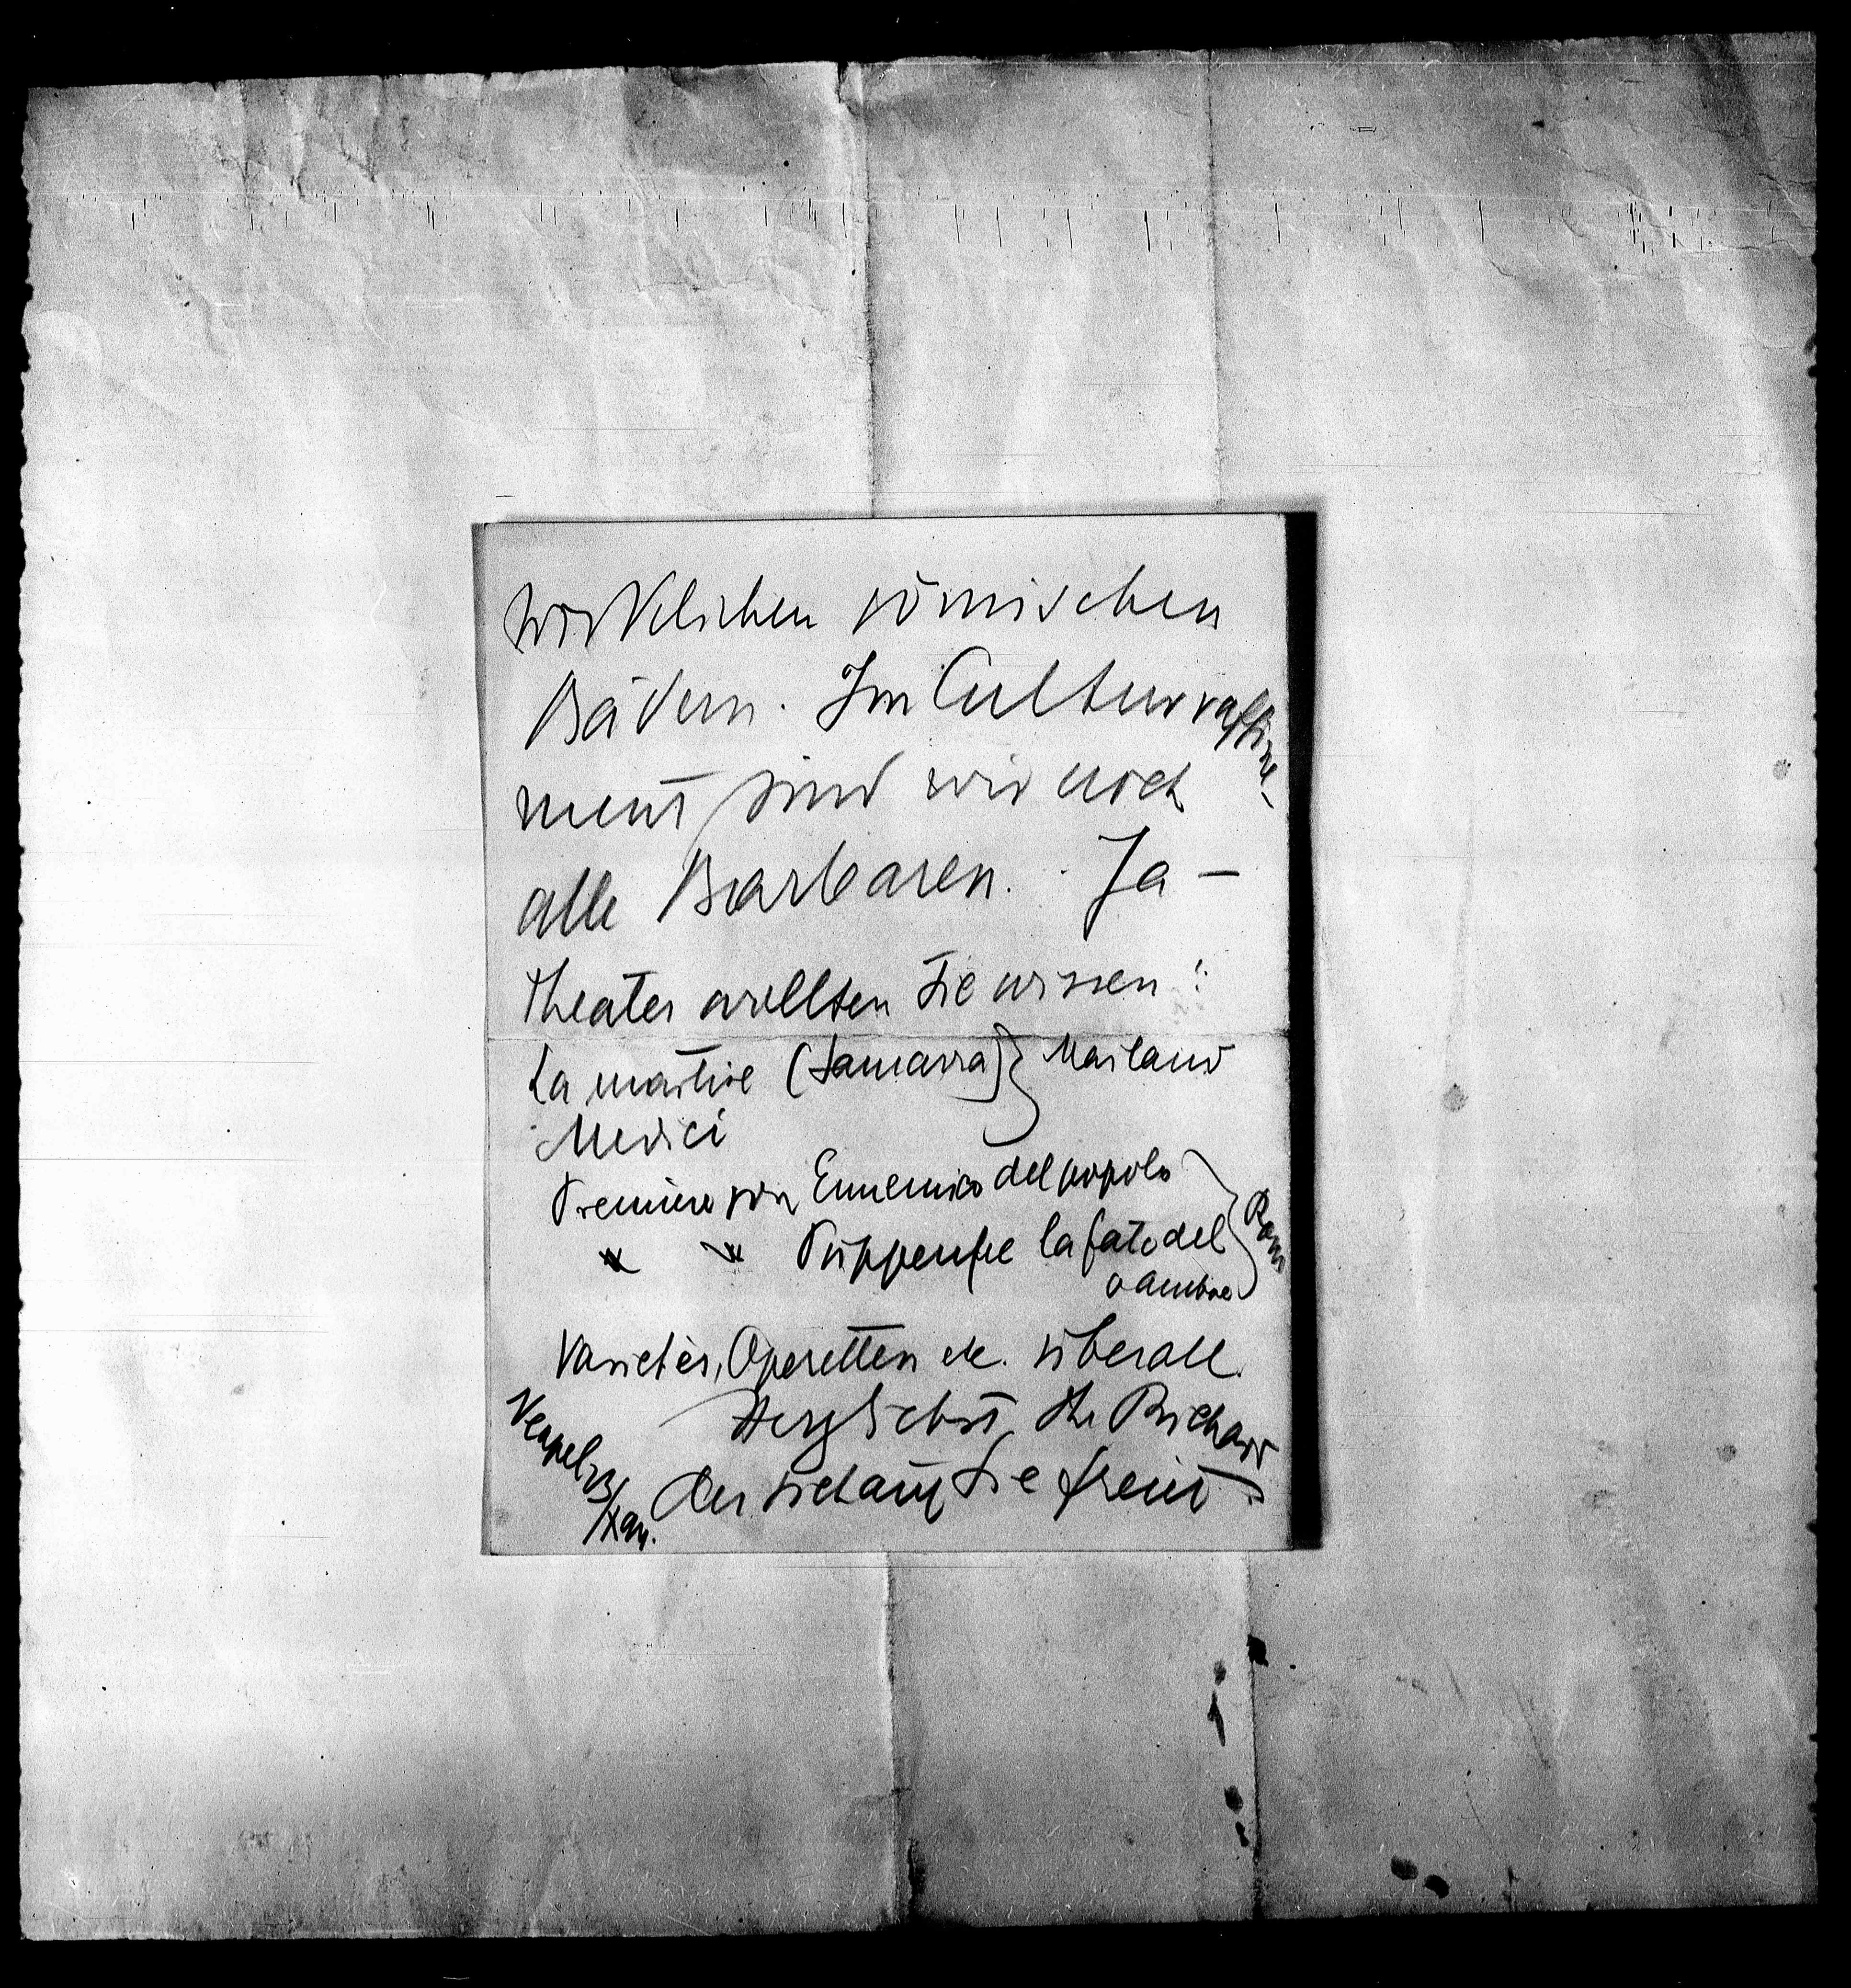 wirklichen römischen
Bädern. Im Culturraffine-
ment sind wir noch
alle Barbaren. Ja –
Theater wollten Sie wissen:
La martire (Samara) } Mailand
Medici
Premiere von Ennemico del popolo
" " Puppenfee la fata del
bambole
} Rom
Varietés, Operetten etc. überall.
Herzlichst, Ihr Richard
der sich auf Sie freut
Neapel